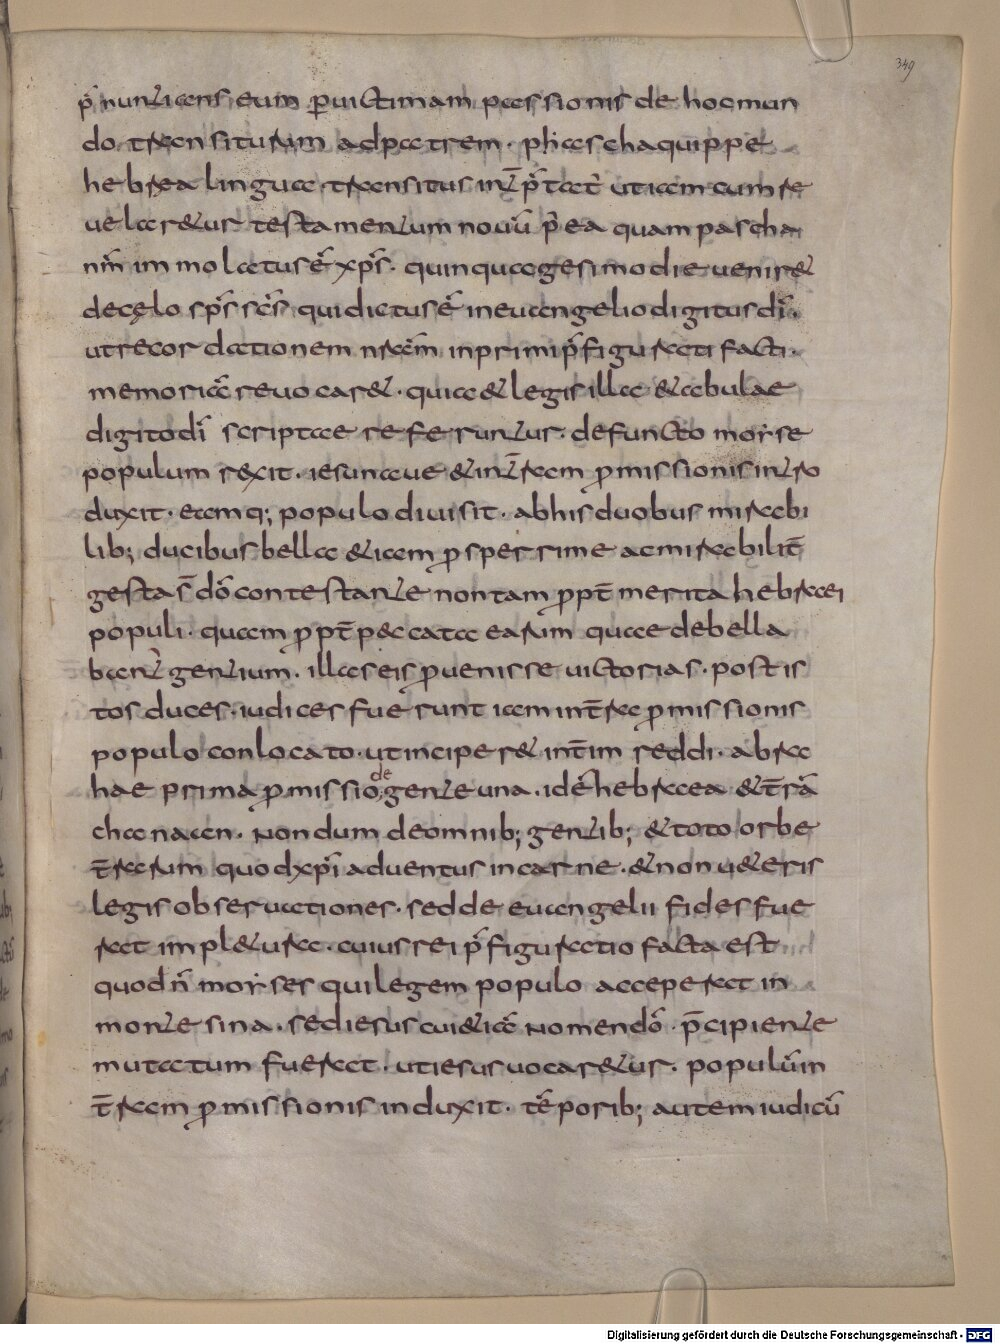 349
p̄nuntians eum ꝑ uictimam passionis de hoc mun
do transiturum ad patrem · phascha quippe
hebrea lingua transitus int̄p̄tat̉ ut iam cum re
uelaretur testamentum nouū p̄ea quam pascha
nr̄m immolatus ē xp̄s · quinquagesimo die uenire&
de cęlo sp̄s sc̄s qui dictus ē in euangelio digitus dī ·
ut recordationem nr̄am in primi p̄figurati facti ·
memoriā reuocar& · quia & legis illa & tabulae
digito dī scriptae referuntur · defuncto moyse
populum rexit · iesu naue & in t̄ram ꝓmissionis intro
duxit · eamq; populo diuisit · ab his duobus mirabi
lib; ducibus bella &iam ꝓsperrime ac mirabilit̄
gesta s̄ dō contestante non tam ꝓpt̄ merita hebraei
populi · quam ꝓpt̄ peccata earum quae debella
bant̉ gentium · illas eis ꝓuenisse uictorias · post is
tos duces · iudices fuerunt iam in t̄ra ꝓmissionis
populo conlocato · ut inciper& int̄im reddi · abra
hae prima ꝓmissio de gente una · id ē hebraea & t̄rā
chanaan · nondum de omnib; gentib; & toto orbe
t̄rarum quod xp̄i aduentus in carne · & non u&eris
legis obseruationes · sed de euangelii fides fue
rat impl&ura · cuius rei p̄figuratio facta est
quod n̄ moyses qui legem populo acceperat in
monte sina · sed iesus cui &iā nomen dō p̄cipiente
mutatum fuerat · ut iesus uocar&ur · populū in
t̄ram ꝓmissionis induxit · tēporib; autem iudicū
Digitalisierung gefördert durch die Deutsche Forschungsgemeinschaft - DFG